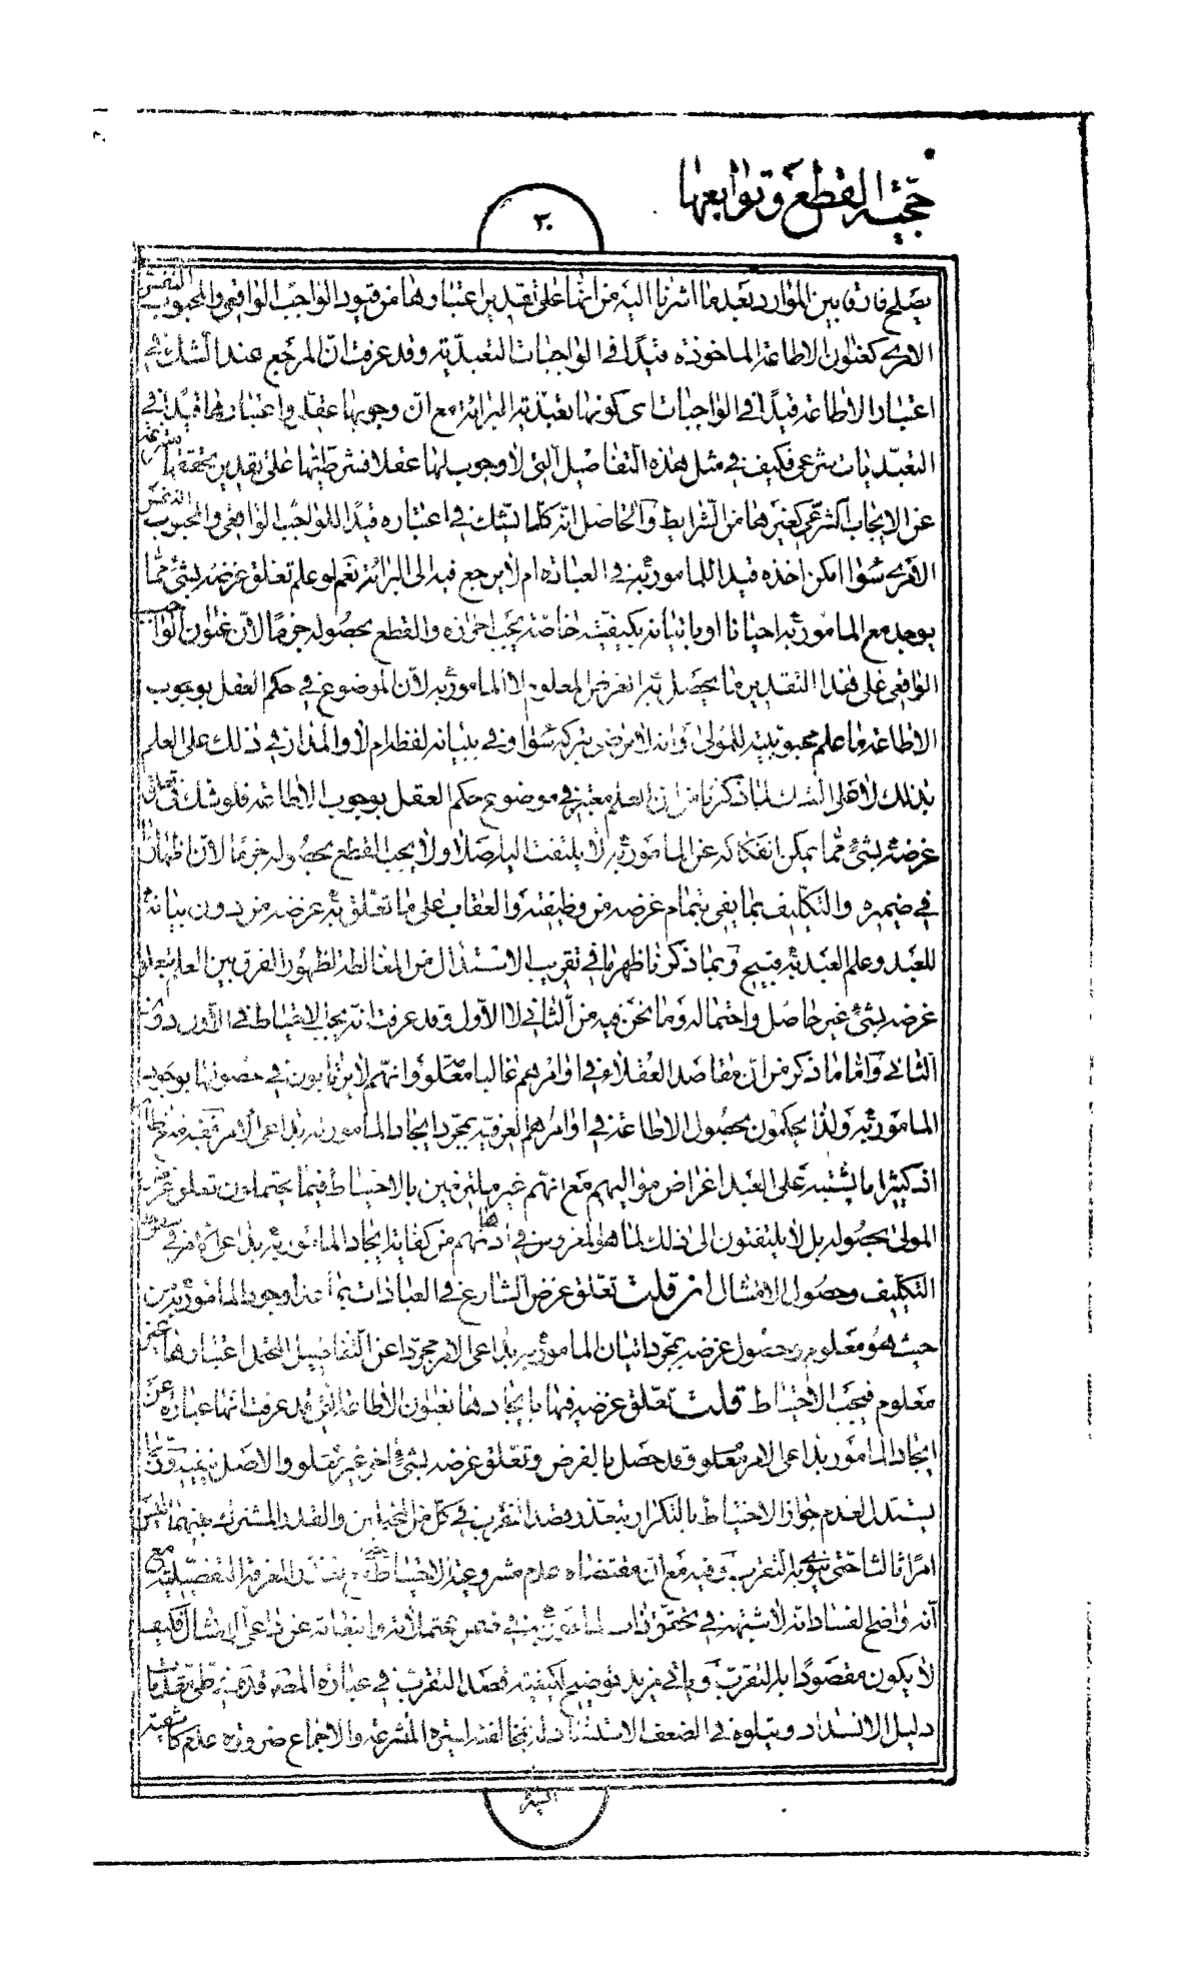 حجية القطع وتوابعها
٣٠
يصلح فارقا بين الموارد بعد ما اشرنا اليه من انها على تقدير اعتبارها من قيود الواجب الواقعى والمحبوب النفس
الامرى كعنوان الاطاعة الماخوذة قيدا فى الواجبات التعبدية وقد عرفت ان المرجع عند الشك فى
اعتبار الاطاعة قيدا فى الواجبات اى كونها تعبدية البرائة مع ان وجوبها عقلى واعتبارها قيدا فى
التعبديات شرعى فكيف فى مثل هذه التفاصيل التى لا وجوب لها عقلا فشرطيتها على تقدير تحققها
عن الايجاب الشرعى كغيرها من الشرايط والحاصل انه كلما نشك فى اعتباره قيدا للواجب الواقعى والمحبوب النفس
الامرى سواء امكن اخذه قيدا للمامور به فى العبادة ام لا يرجع فيه الى البرائة نعم لو علم تعلق غرضه بشئ مما
يوجد مع المامور به احيانا او باتيانه بكيفية خاصة يجب احرازه والقطع بحصوله جزما لان عنوان الواجب
الواقعى على هذا التقدير ما يحصل به الغرض المعلوم لا المامور به لان الموضوع فى حكم العقل بوجوب
الاطاعة ما علم محبوبيته للمولى وانه لا يرضى بتركه سواء وفى ببيانه لفظه ام لا والمدار فى ذلك على العلم
بذلك لا على الشك لما ذكرنا من ان العلم معتبر فى موضوع حكم العقل بوجوب الاطاعة فلو شك فى تعلق
غرضه بشئ مما يمكن انفكاكه عن المامور به لا يلتفت اليه اصلا ولا يجب القطع بحصوله جزما لان اظهار
فى ضميره والتكليف بما يفى بتمام غرضه من وظيفته والعقاب على ما تعلق به غرضه من دون بيانه
للعبد وعلم العبد به قبيح وبما ذكرنا ظهر ما فى تقريب الاستدلال من المغالطة لظهور الفرق بين العلم بتعلق
غرضه بشئ غير حاصل واحتماله وما نحن فيه من الثانى لا الاول وقد عرفت انه يجب الاحتياط فى الاول دون
الثانى واما ما ذكر من ان مقاصد العقلاء فى اوامرهم غالبا معلومة وانهم لا يرتابون فى حصولها بوجود
المامور به ولذا يحكمون بحصول الاطاعة فى اوامرهم العرفية بمجرد ايجاد المامور به بداعى الامر ففيه منع
اذ كثيرا ما يشتبه على العبد اغراض مواليهم مع انهم غير ملتزمين بالاحتياط فيما يحتملون تعلق غرض
المولى بحصوله بل لا يلتفتون الى ذلك لما هو المغروس فى اذهانهم من كفاية ايجاد المامور به بداعى الامر فى سقوط
التكليف وحصول الامتثال ان قلت تعلق غرض الشارع فى العبادات بما عدا وجود المامور به من
حيث هو معلوم وحصول غرضه بمجرد اتيان المامور به بداعى الامر مجردا عن التفاصيل المحتمل اعتبارها غير
معلوم فيجب الاحتياط قلت تعلق غرضه فيها بايجادها بعنوان الاطاعة التى قد عرفت انها عبارة عن
ايجاد المامور بداعى الامر معلوم وقد حصل بالفرض وتعلق غرضه بشئ اخر غير معلوم والاصل ينفيه وربما
يستدل لعدم جواز الاحتياط بالتكرار بتعذر قصد التقرب فى كل من المحتملين والقدر المشترك بينهما ليس
امرا ثالثا حتى ينوى به التقرب وفيه مع ان مقتضاه عدم مشروعية الاحتياط عند تعذر المعرفة التفصيلية مع
انه واضح الفساد انه لا شبهة فى تحقق ذات المامور به فى ضمن محتملاته وانبعاثه عن داعى الامتثال فكيف
لا يكون مقصودا به التقرب وياتى مزيد توضيح لكيفية قصد التقرب فى عبارة المصنف قدس سره فى طى مقدمات
دليل الانسداد ويتلوه فى الضعف الاستناد له بمخالفته لسيرة المتشرعة والاجماع ضرورة عدم كاشفية
السيرة